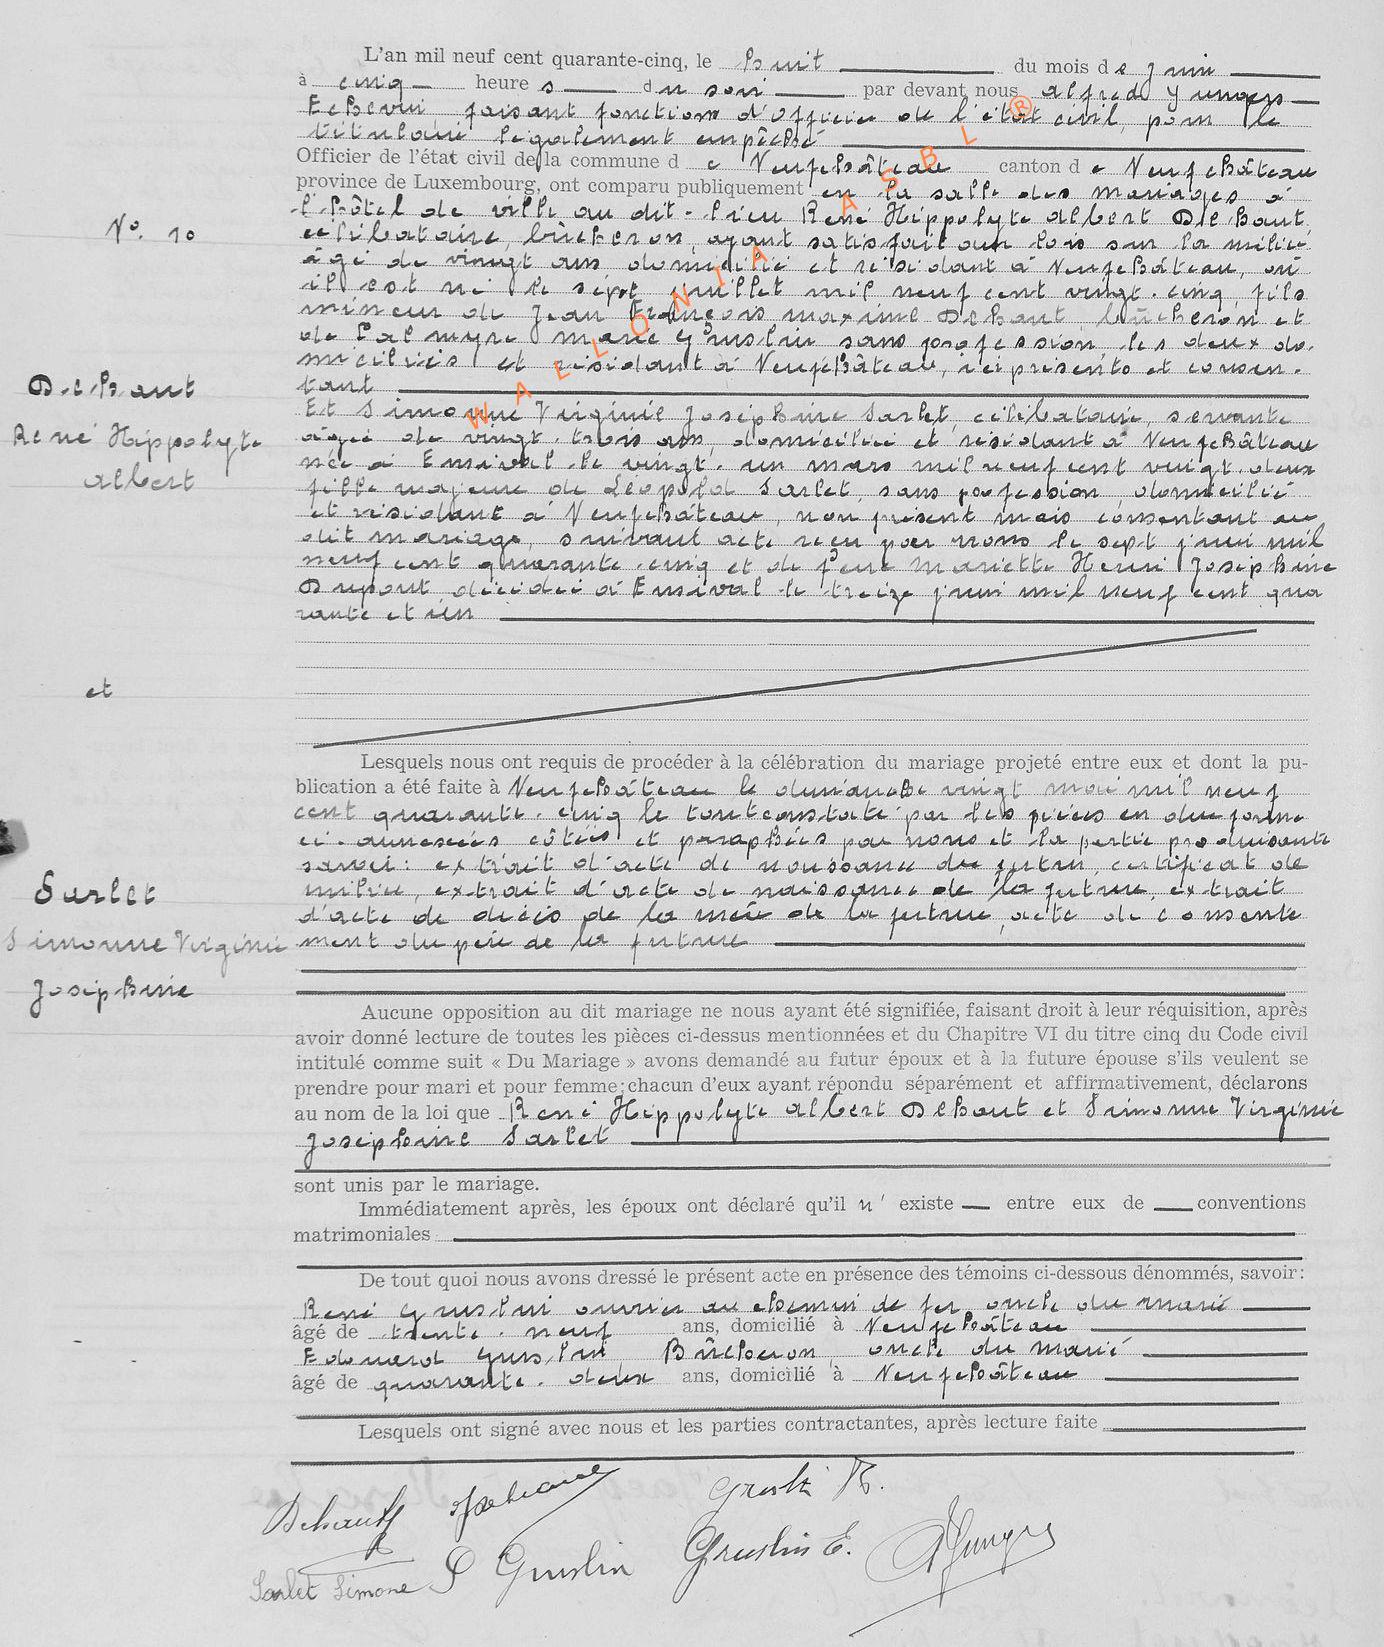 L'an mil neuf cent quarante-cinq, le huit du mois de juin
à cinq heures du soir par devant nous Alfred
Echevin faisant fonctions d'Officier de l'état civil, pour le
titulaire légalement empêché
Officier de l'état civil de la commune de Neufchâteau canton de Neufchâteau
province de Luxembourg, ont comparu publiquement en la salle des mariages à
l'hôtel de ville au dit-lieu René Hippolyte Albert Dehaut
célibataire, bûcheron, ayant satisfait aux lois sur la milice
âgé de vingt ans domicilié et résidant à Neufchâteau, où
il est né le sept juillet mil neuf cent vingt-cinq, fils
mineur de Jean François Maxime Dehaut, bûcheron et
de Palmyre Marie Gruslin sans profession, les deux do-
miciliés et résidant à Neufchâteau, ici présents et consen-
tant
Et Simonne Virginie Joséphine Sarlet, célibataire, servante
âgée de vingt-trois ans, domiciliée et résidant à Neufchâteau
née à Ensival le vingt-un mars mil neuf cent vingt-deux
fille majeure de Léopold Sarlet, sans profession, domicilié
et résidant à Neufchâteau, non présent mais consentant au
dit mariage, suivant acte reçu par nous le sept juin mil
neuf cent quarante-cinq et de feue Mariette Henri Joséphine
Dupont, décédée à Ensival le treize juin mil neuf cent qua
rante et un
Lesquels nous ont requis de procéder à la célébration du mariage projeté entre eux et dont la pu-
blication a été faite à Neufchâteau le dimanche vingt mai mil neuf
cent quarante-cinq le tout constaté par les pièces en due forme
ci-annexées côtées et paraphées par nous et la partie produisante
savoir: extrait d'acte de naissance du futur, certificat de
milice, extrait d'acte de naissance de la future, extrait
d'acte de décès de la mère de la future, acte de consente
ment du père de la future
Aucune opposition au dit mariage ne nous ayant été signifiée, faisant droit à leur réquisition, après
avoir donné lecture de toutes les pièces ci-dessus mentionnées et du Chapitre VI du titre cinq du Code civil
intitulé comme suit « Du Mariage » avons demandé au futur époux et à la future épouse s'ils veulent se
prendre pour mari et pour femme; chacun d'eux ayant répondu séparément et affirmativement, déclarons
au nom de la loi que René Hippolyte Albert Dehaut et Simonne Virginie
Joséphine Sarlet
sont unis par le mariage.
Immédiatement après, les époux ont déclaré qu'il n'existe entre eux de conventions
matrimoniales
De tout quoi nous avons dressé le présent acte en présence des témoins ci-dessous dénommés, savoir:
René Gruslin ouvrier au chemin de fer oncle du marié
âgé de trente-neuf ans, domicilié à Neufchâteau
Edouard Gruslin, Bûcheron, oncle du marié
âgé de quarante-deux ans, domicilié à Neufchâteau
Lesquels ont signé avec nous et les parties contractantes, après lecture faite
Dehaut
Gruslin R.
Sarlet Simone P Gruslin Gruslin E.
No. 10
Dehaut
René Hippolyte
Albert
et
Sarlet
Simonne Virginie
Joséphine
WALLONIA ASBL ®